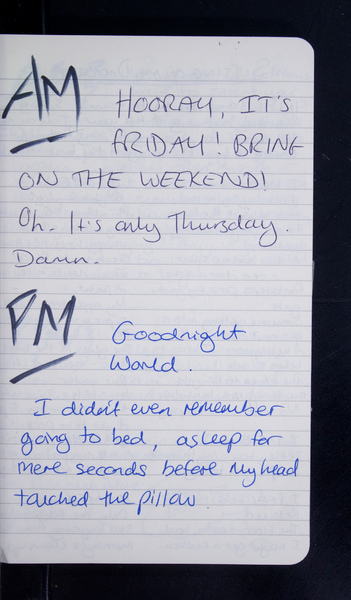 AM
HOORAY, IT'S
FRIDAY! BRING
ON THE WEEKEND!
Oh. It's only Thursday.
Damn.
PM
Goodnight
World.
I didn't even remember
going to bed, asleep for
mere seconds before my head
touched the pillow